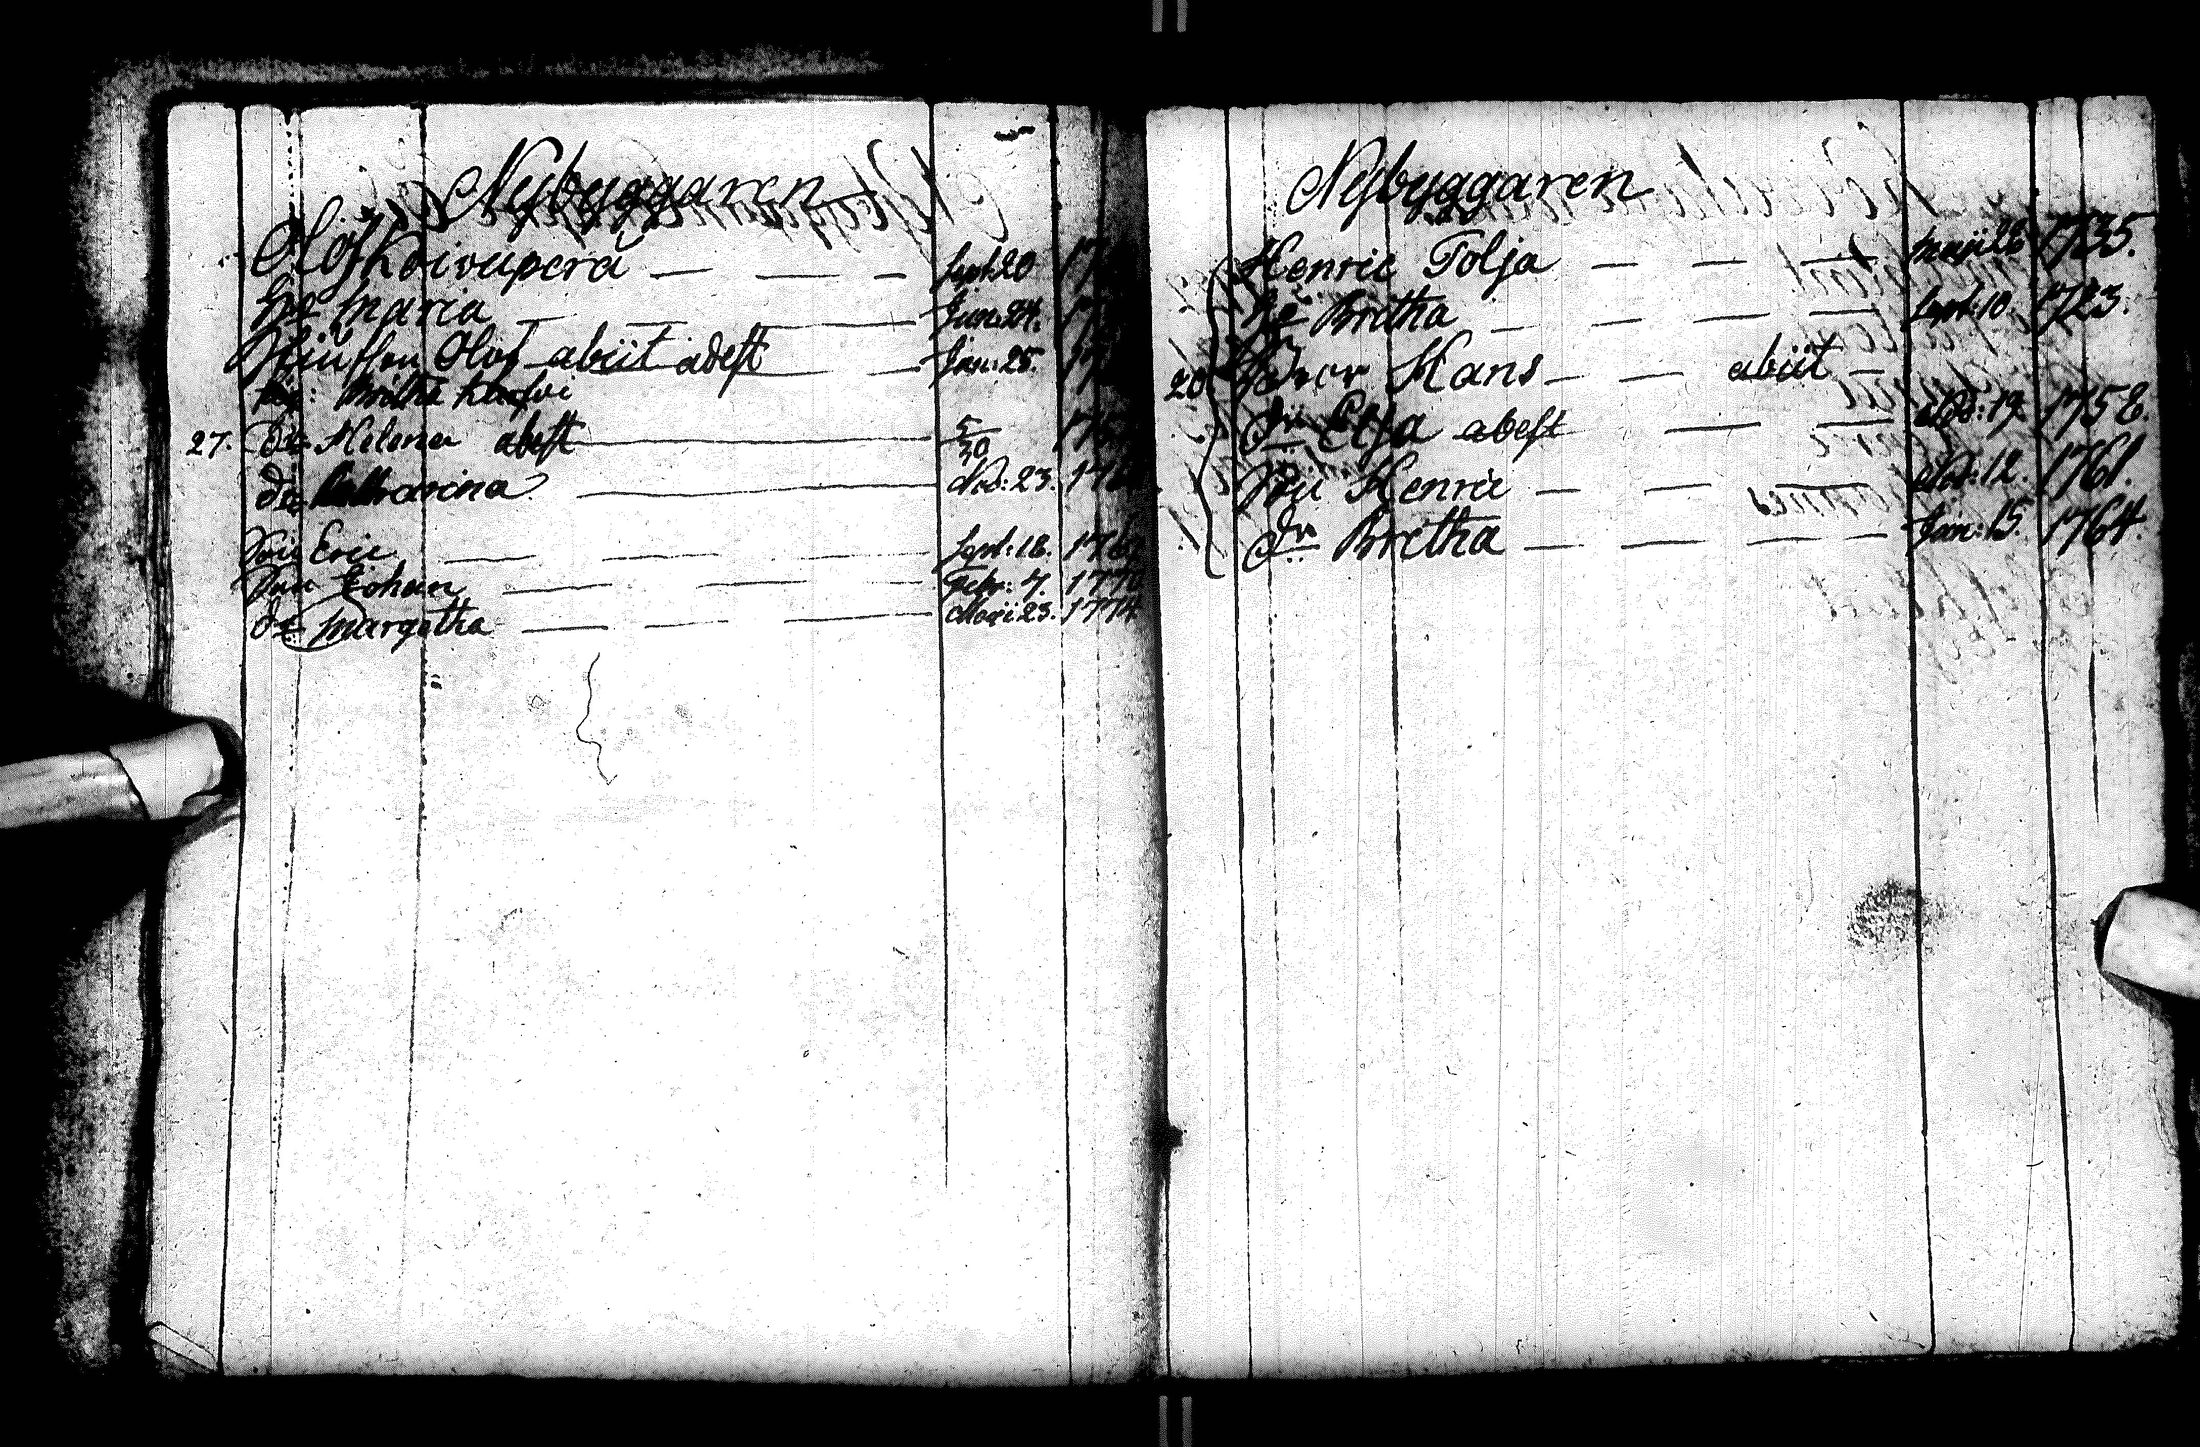 Nybyggaren
Olof Koivuperä — — — Sept: 20 17
H:u Maria — — — Jun: 24. 17
Olof abiit adest — Jan: 25. 17
Britha
27. D:r Helena abest — 5/30 17
D:r Catharina — Nov: 23. 17
Son Eric — — — Sept: 18. 176
Son Johan — — — Febr: 7. 177
D:r Margetha — — — Maji 23. 1774
Nybyggaren
Henric Tolja — — — Maji 26 1735.
H:u Britha — — — — Sept: 10. 1723.
20 Hans — — abiit —
D:r abest — — Nov: 19. 1758.
Henric — — — 12. 1761.
D:r Bretha — — — — Jan: 15. 1764.